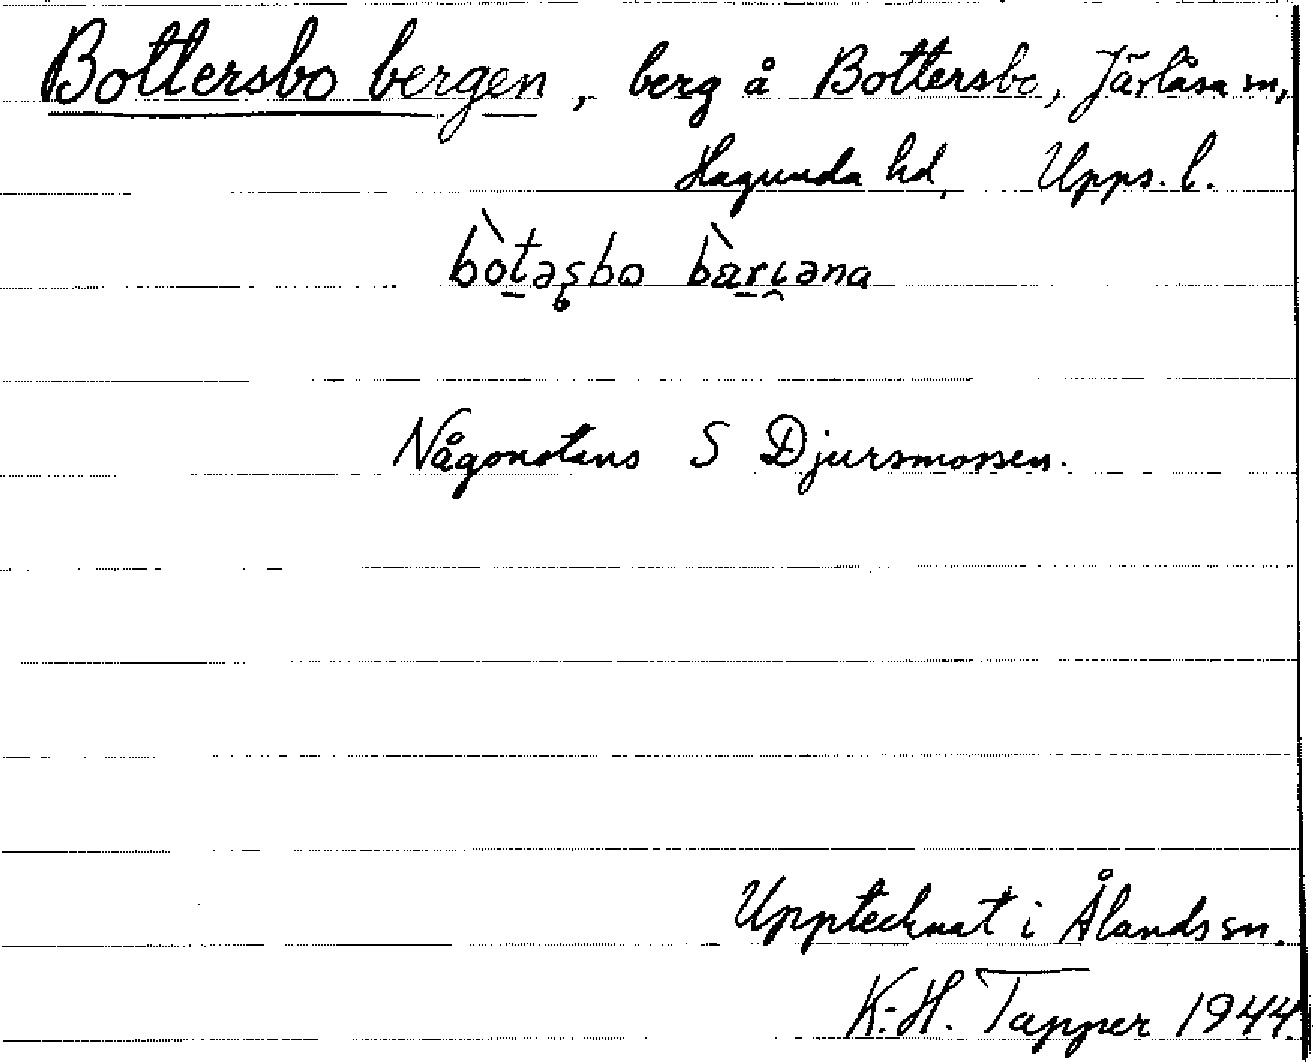 Bottersbo bergen, berg å Bottersbo, Järlåsa sn,
Hagunda hd, Upps. l.
bòtəʂbo bὰrɩəna
Någonstans S Djursmossen.
Upptecknat i Ålands sn.
K.-H. Tapper 1944.